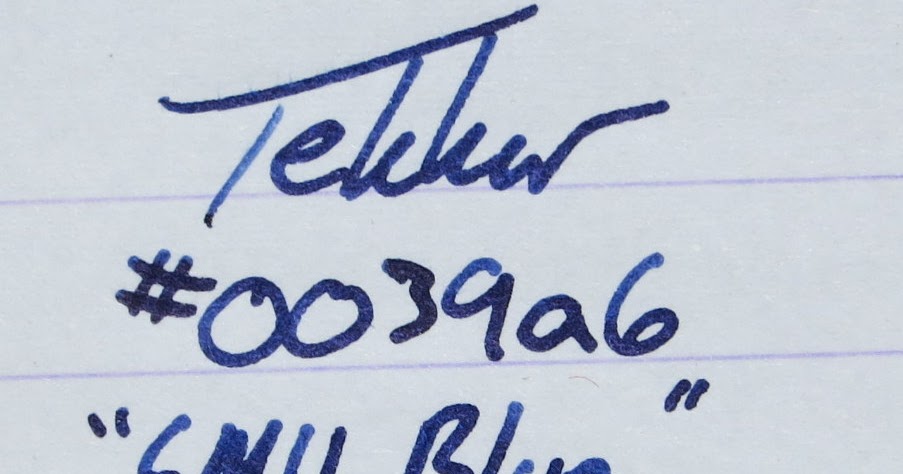 Tekker
#0039a6
"SMU Blue"